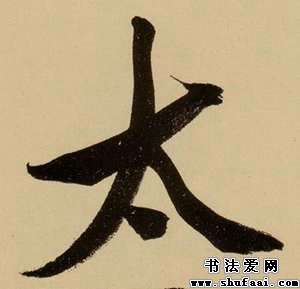 太
书法爱网
www.shufaai.com